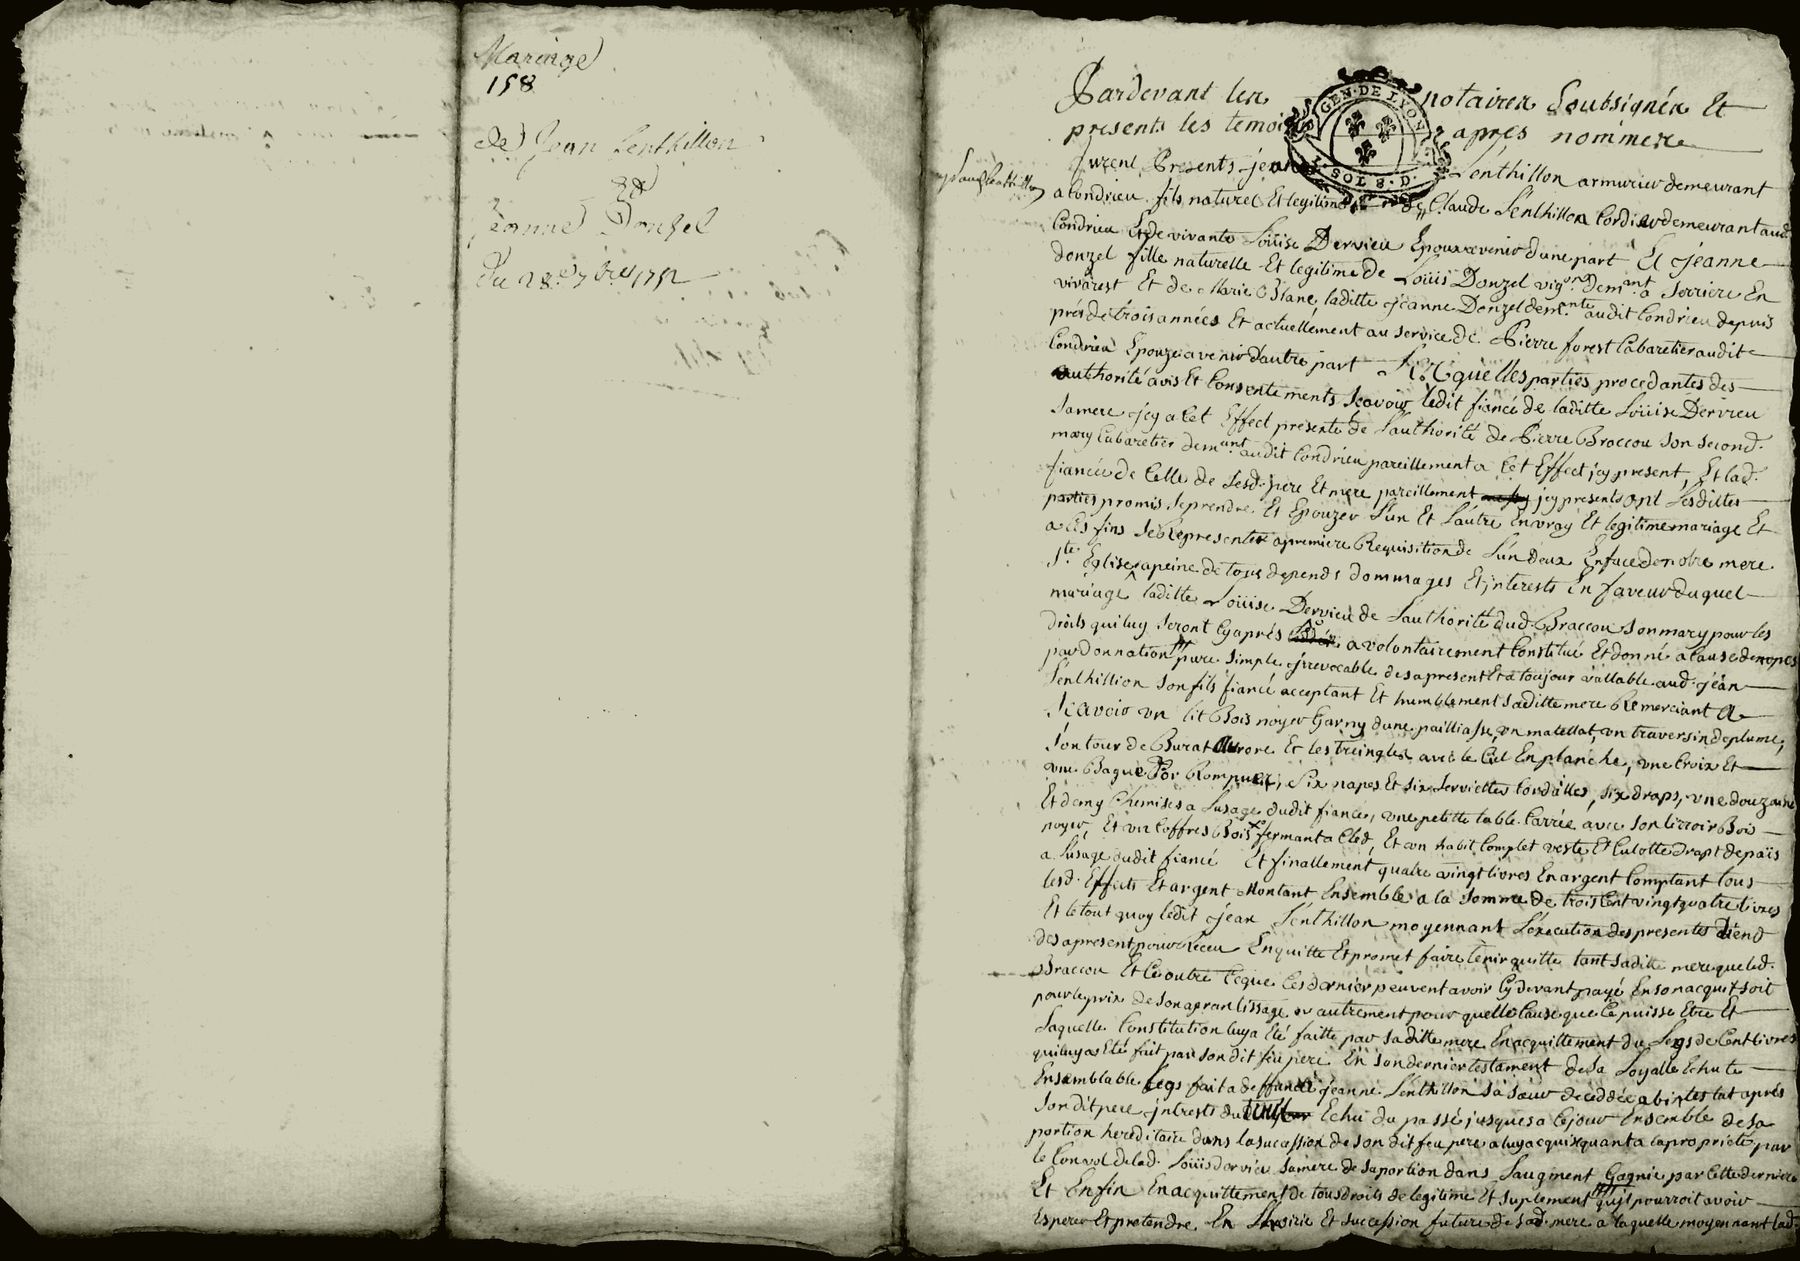 Mariage
158
de Jean Senthillon
&
jeanne Donzel
du 28e 7bre 1752
Pardevant les notaires Soubsignés Et
presents les temoins apres nommere
GEN. DE LYON
SOL 8. D.
furent Presents jean Senthillon armurier demeurant
a Condrieu fils naturel Et legitime de Claude Senthillon Cordier demeurant aud.
Condrieu Et de vivante Loüise Dervieu Epoux avenir d'une part Et jeanne
donzel fille naturelle Et legitime de Loüis Donzel vigon demant a Serriere En
vivarest Et de Marie laditte jeanne Donzel demante audit Condrieu depuis
prés de trois années Et actuellement au service de Pierre forest Cabaretier audit
Condrieu Epouze avenir d'autre part Lesquelles parties procedantes des
authorité avis Et Consentements Scavoir ledit fiancé de laditte Loüise Dervieu
Sa mere jcy a Cet Effect presente de l'authorité de Pierre Braccou Son Second
mary Cabaretier demant audit Condrieu pareillement a Cet Effect jcy present, Et lad.
fiancée de Celle de Sesd. pere Et mere pareillement jcy presents ont Lesdittes
parties promis Se prendre Et Epouzer L'un Et L'autre En vray Et legitime mariage Et
a Ces fins Se Representer a premiere Requisition de L'un d'eux En face de notre mere
Ste Eglise a peine de tous depends dommages Et interests En faveur duquel
mariage laditte Loüise Dervieu de L'authorité dud. Braccou Son mary pour les
droits qui luy Seront Cy aprés a volontairement Constitué Et donné a Cause de nopces
par donnation pure Simple jrrevocable des apresent Et a toujour vallable aud. jean
Senthillion Son fils fiancé acceptant Et humblement Saditte mere Remerciant
Scavoir un lit Bois noyer Garny d'une pailliasse, un matellat, un traversin de plume,
Son tour de Burat aurore Et les tringles avec le Ciel En planche, une Croix Et
une Bague d'or Rompues, Six napes Et Six Serviettes Cordailles, Six draps, une douzaine
Et demy Chemises a L'usage dudit fiancé, une petitte table Carrée avec Son tirroir Bois
noyer, Et un Coffres Bois fermant a Clef, Et un habit Complet veste Et Culotte drapt de païs
a L'usage dudit fiancé Et finallement quatre vingt livres En argent Comptant tous
lesd. Effects Et argent Montant Ensemble a la Somme de trois Cent vingt quatre livres
Et le tout quoy ledit jean Senthillon moyennant L'execution des presentes tiend
des apresent pour Receu En quitte Et promet faire tenir quitte tant Saditte mere que led.
Braccou Et Ce outre Ce que Ces dernier peuvent avoir Cy devant payé En Son acquit Soit
pour le prix de Son aprantissage ou autrement pour quelle Cause que Ce puisse Etre Et
Laquelle Constitution luy a Eté faitte par Saditte mere En acquittement du Legs de Cent livres
qui luy a Eté fait par Son dit feu pere En Son dernier testament de Sa Loyalle Echute
En Semblable Legs fait a deffunte jeanne Senthillon Sa Sœur deceddée abintestat aprés
Son dit pere jntrests du Echu du passé jusques a Ce jour Ensemble de Sa
portion hereditaire dans la Sucession de Son dit feu pere a luy acquis quant a la proprieté par
le Convol de lad. Loüis Dervieu Sa mere de Sa portion dans L'augment Gagnée par Cette derniere
Et Enfin En acquittement de tous droits de legitime Et Suplement qu'il pourroit avoir
Esperer Et pretendre En L'hoirie Et Succession future de Sad. mere a laquelle moyennant lad.